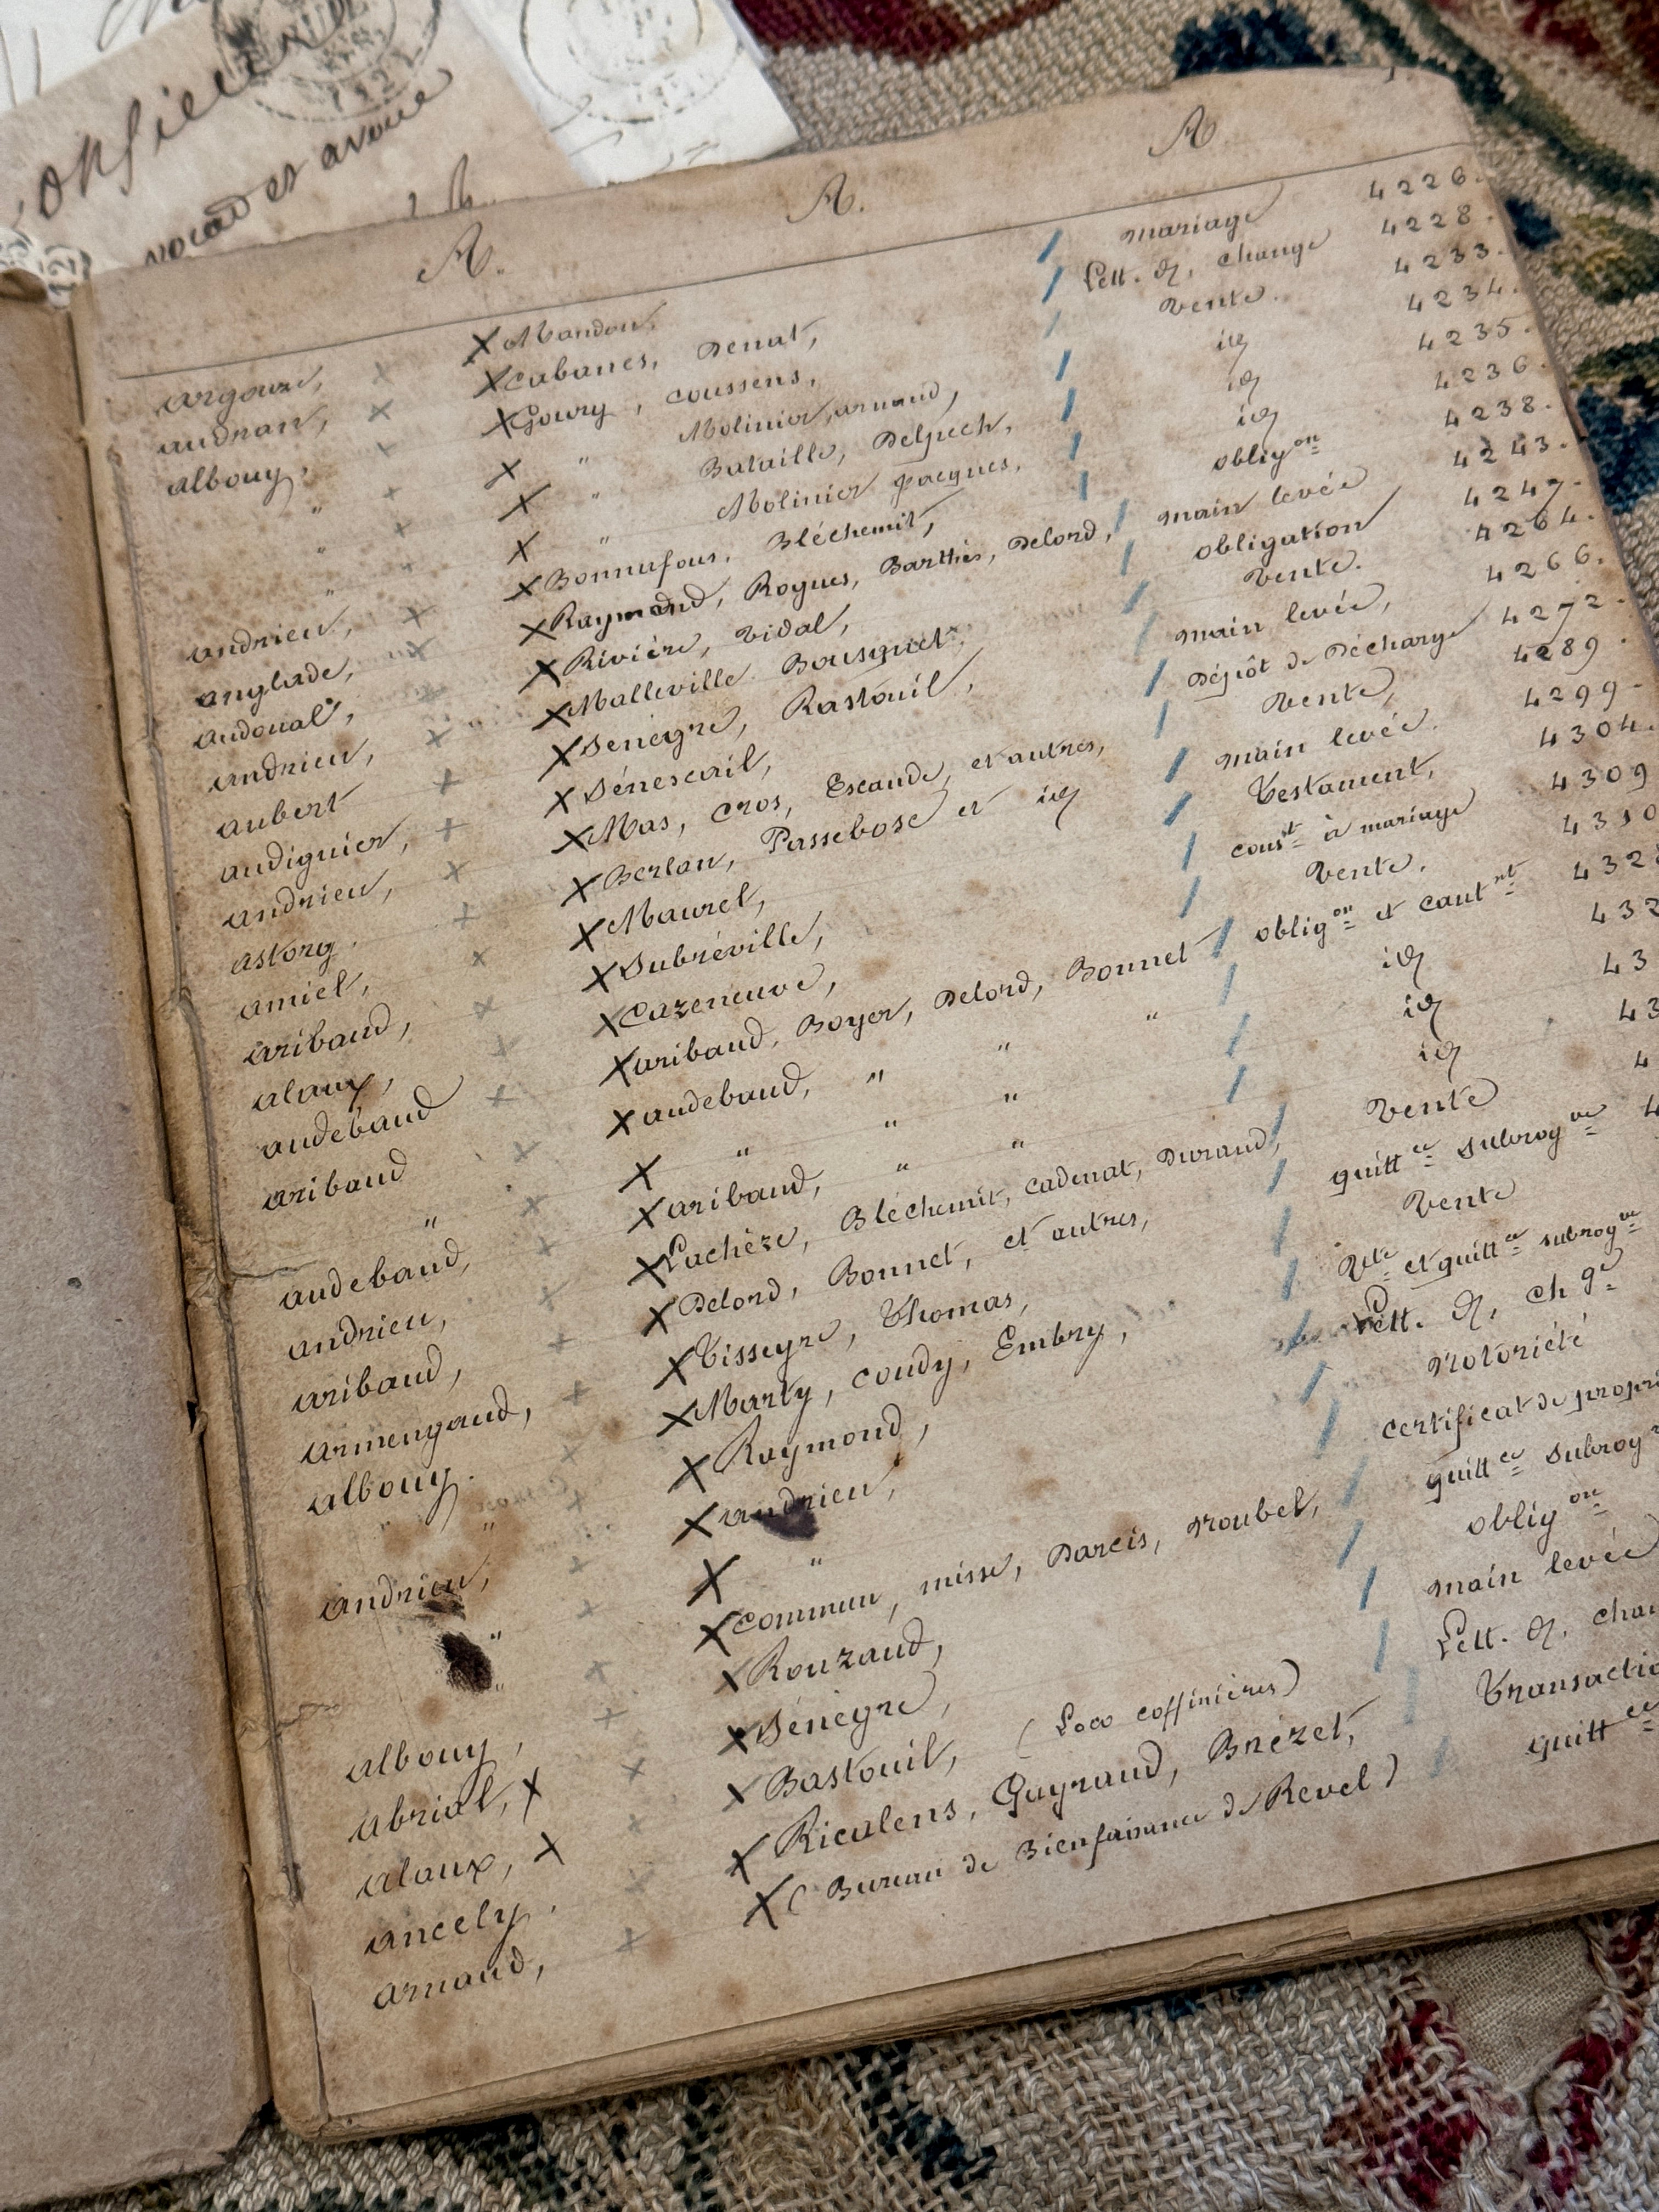 onsieur
avocat et avoué
A. A. A
argoux, × X Mandou, / mariage 4226.
audran, × X Cabanes, Denat, / Lett. d. change 4228.
albouy, × X Goury, coussens, / vente. 4233.
" × X " Molinier, arnaud, / id 4234.
" × X " Bataille, Delpech, / id 4235.
" × X " Molinier jacques, / id 4236.
andrieu, × X Bonnafous, Bléchemit, / oblig on 4238.
anglade, × X Raymond, Rogues, Barthès, Delord, / main levée 4243.
audoual, X Rivière, Vidal, / obligation 4247.
andrieu, × X Malleville Bousquet, / vente. 4264.
aubert × X Senegre, Rastouil, / main levée, 4266.
audiguier, × X Sénescail, / Dépôt de Décharge 4272.
andrieu, × X Mas, Cros, Escande, et autres, / vente, 4289.
astorg. × X Berlan, Passebosc et id / main levée. 4299.
amiel, × X Maurel, / Testament, 4304.
aribaud, × X Subréville, / const à mariage 4309
alaux, × X Cazeneuve, / vente. 4310
audebaud × X aribaud, Boyer, Delord, Bonnet / oblig on et caut nt 432
aribaud × X audebaud, " " " / id 432
" × X " " " / id 43
audebaud, × X aribaud, " " / id 43
andrieu, × X Lachèze, Bléchemit, cadenat, Durand, / vente 4
aribaud, × X Delord, Bonnet, et autres, / quitt ce subrog ve 4
armengaud, × X Tisseyre, Thomas, / vente
albouy. × X Marty, coudy, Embry, / Vte et quitt ce subrog ve
" × X Raymond, Lett. d. ch ge
andrieu, × X andrieu, / Notoriété
" × X " / certificat de propri
" × X Commun, misse, Darcis, Roubel, / quitt ce subrog
albouy, × X Rouzaud, / oblig on
abrial, X × X Sénégre, / main levée
alaux, X × X Bastouil, (Loco coffinières) / Lett. d. chan
ancely. × X Riculens, Gayraud, Brézet, / Transactio
arnaud, × X (Bureau de Bienfaisance de Revel) / quitt ce